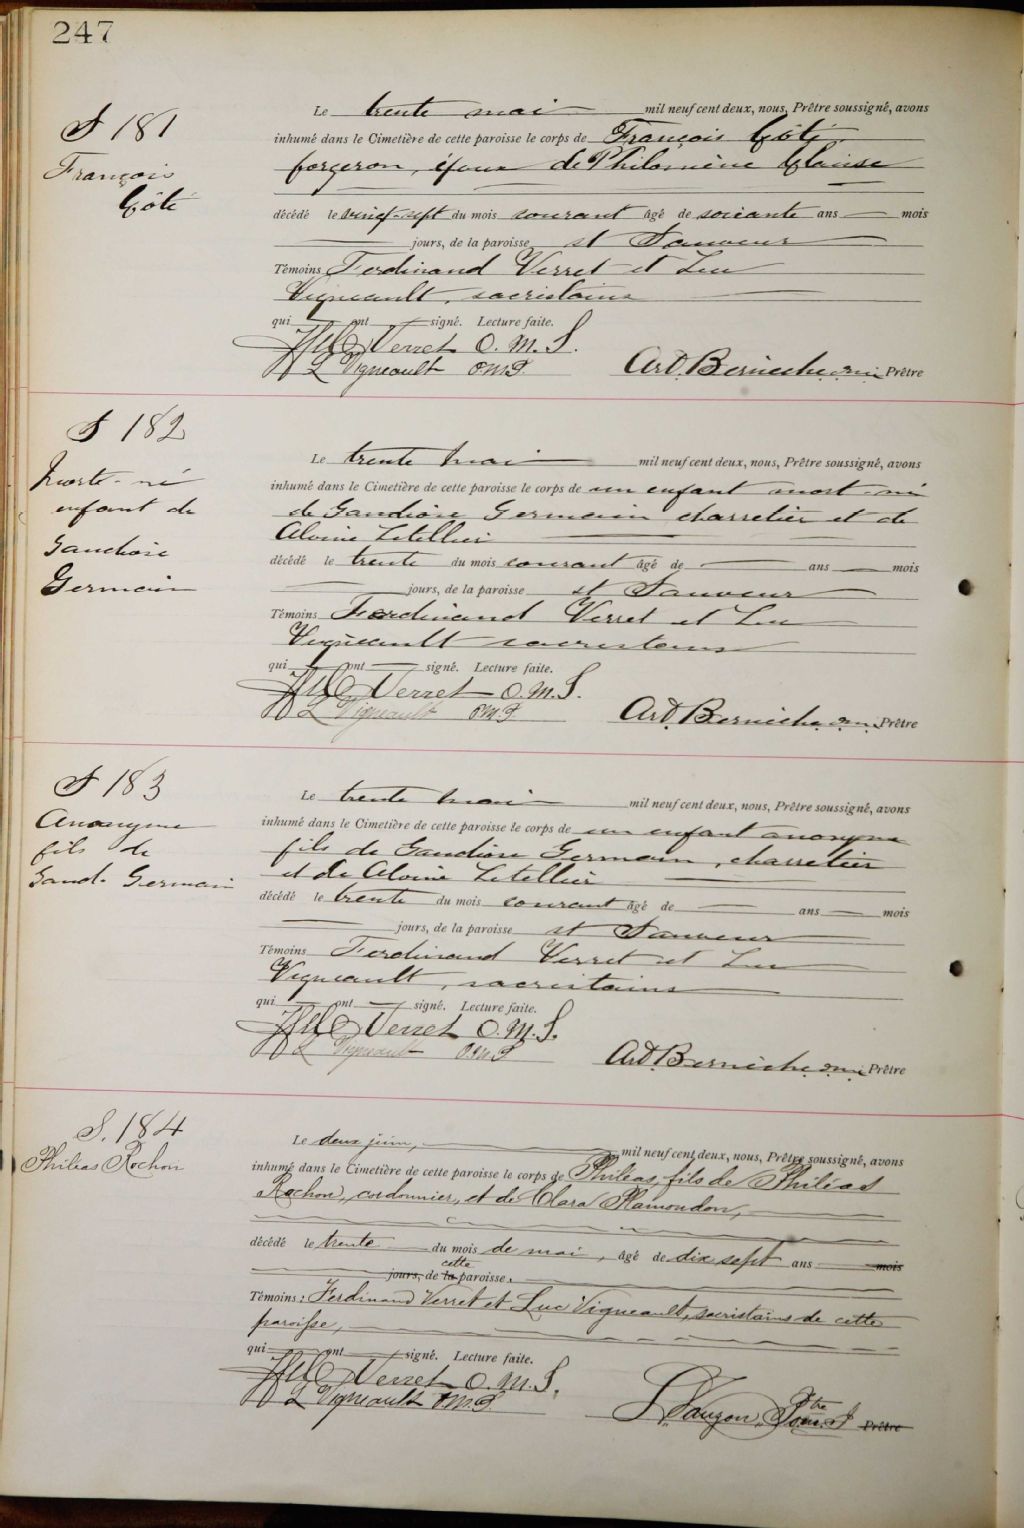 247
S 181
François
Côté
Le trente mai mil neuf cent deux, nous, Prêtre soussigné, avons
inhumé dans le Cimetière de cette paroisse le corps de François Côté
forgeron, époux de Philomène
décédé le vingt-sept du mois courant âgé de soixante ans mois
jours, de la paroisse st Sauveur
Témoins Ferdinand Verret et Luc
Vigneault, sacristains
qui ont signé. Lecture faite.
Verret O. M. I.
L Vigneault OMI
Ard. Bernèche o.m.i. Prêtre
S 182
Mort-né
enfant de
Gaudiose
Germain
Le trente mai mil neuf cent deux, nous, Prêtre soussigné, avons
inhumé dans le Cimetière de cette paroisse le corps de un enfant mort-né
de Gaudiose Germain charretier et de
Alvine Letellier
décédé le trente du mois courant âgé de ans mois
jours, de la paroisse st Sauveur
Témoins Ferdinand Verret et Luc
Vigneault sacristains
qui ont signé. Lecture faite.
Verret O. M. I.
L Vigneault OMI
Ard. Bernèche o.m.i. Prêtre
S 183
Anonyme
fils de
Gaud. Germain
Le trente mai mil neuf cent deux, nous, Prêtre soussigné, avons
inhumé dans le Cimetière de cette paroisse le corps de un enfant anonyme
fils de Gaudiose Germain, charretier
et de Alvine Letellier
décédé le trente du mois courant âgé de ans mois
jours, de la paroisse st Sauveur
Témoins Ferdinand Verret et Luc
Vigneault, sacristains
qui ont signé. Lecture faite.
Verret O. M. I.
L Vigneault OMI
Ard. Bernèche o.m.i. Prêtre
S. 184
Philéas Rochon
Le deux juin, mil neuf cent deux, nous, Prêtre soussigné, avons
inhumé dans le Cimetière de cette paroisse le corps de Philéas, fils de Philéas
Rochon, cordonnier, et de Clara Plamondon,
décédé le trente du mois de mai, âgé de dix sept ans mois
jours, de la cette paroisse.
Témoins : Ferdinand Verret et Luc Vigneault, sacristains de cette
paroisse,
qui ont signé. Lecture faite.
Verret O. M. I.
L Vigneault OMI
Prêtre